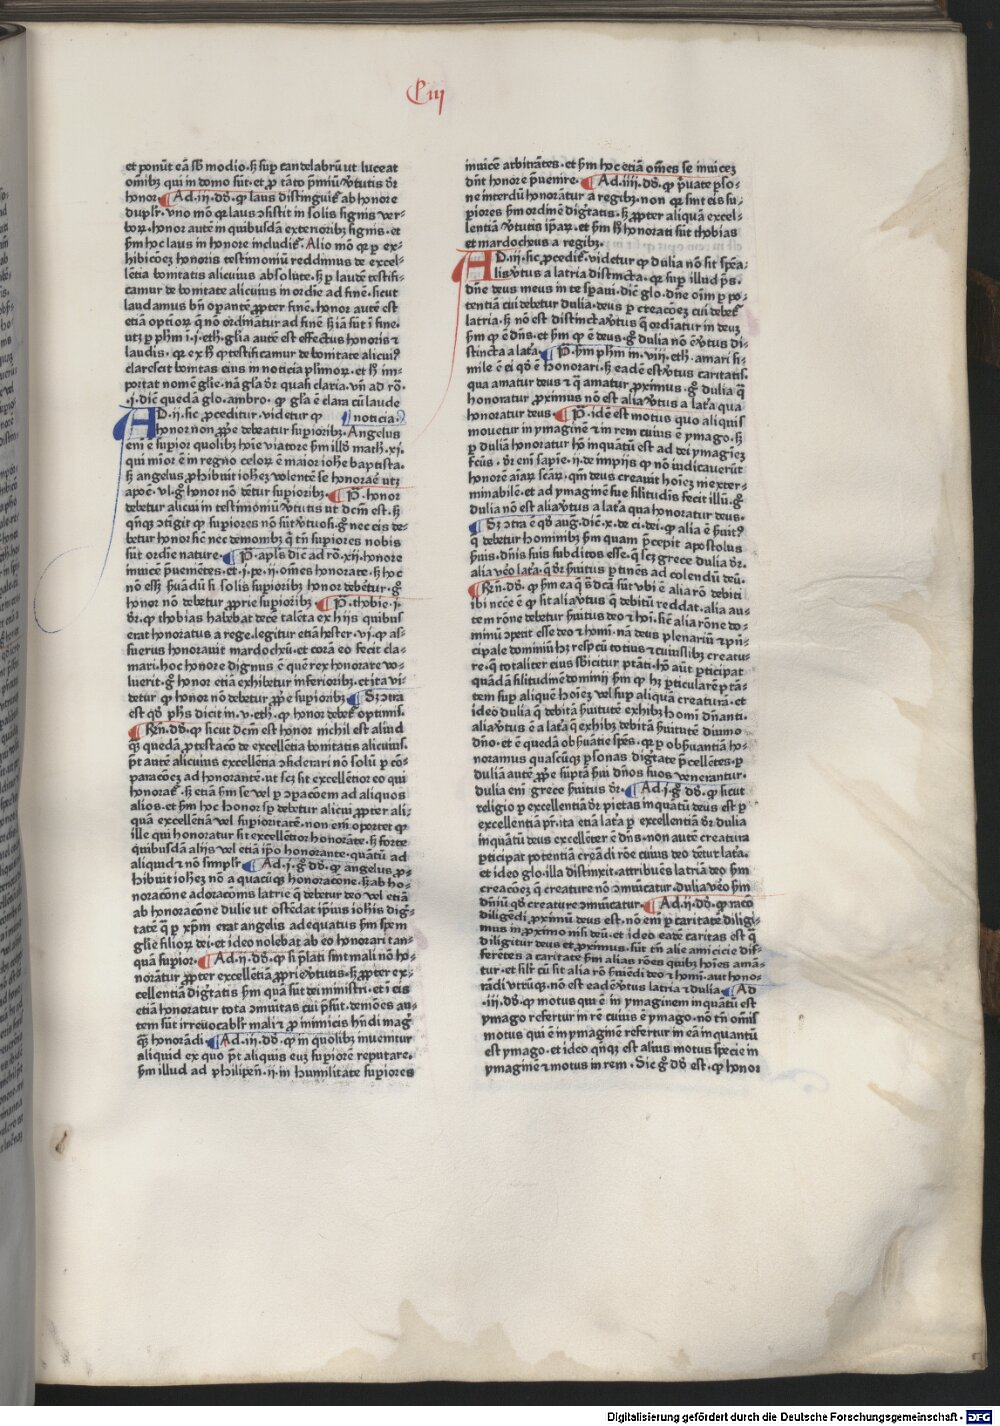 Ciij
et ponūt eā sb modio· sꝫ sup candelabrū ut luceat
omībꝫ qui in domo sūt· et ꝓ tāto p̄miū v̓tutis dr̄
honor· Ad· iij· dō· qꝫ laus distinguiť ab honore
duplr̄· vno mō qꝛ laus ↄsistit in solis signis ver⸗
boꝝ· honor autē in quibusdā exterioribꝫ signis· et
ẜm hoc laus in honore includiť· Alio mō qꝛ ꝑ ex⸗
hibicōeꝫ honoris testimoniū reddimus de excel⸗
lētia bonitatis alicuius absolute· sꝫ ꝑ laudē testifi⸗
camur de bonitate alicuius in ordīe ad finē· sicut
laudamus bn̄ opantē ꝓpter finē· honor autē est
etiā optioꝝ q̄ nō ordīnatur ad finē sꝫ iā sūt ī fine·
utꝫ ꝑ phm̄ ī· j· eth· gl̄ia autē est effectus honoris ⁊
laudis· qꝛ ex hͦ ꝙ testificamur de bonitate alicuiꝰ
clarescit bonitas eius in noticia plimoꝝ· et hͦ im⸗
portat nomē glie· nā gl̄a dr̄ quasi claria· vn̄ ad rō·
·j· diē quedā glo· ambro· ꝙ gl̄a ē clara cū laude
AD· ij· sic ꝓceditur· videtur ꝙ noticia·
honor non ꝓpe debeatur supioribꝫ· Angelus
eni ē supior quolibꝫ hoīe viatore ẜm illđ math· xj·
qui mīor ē in regno celoꝝ ē maior iohē baptista·
sꝫ angelus ꝓhibuit iohēꝫ volentē se honorāe utꝫ
apoc̄· vl· gͦ honor nō dētur supioribꝫ· P̄· honor
debetur alicui in testimoniū v̓tutis ut dcm̄ est· sꝫ
qn̄qꝫ ↄtīgit ꝙ supiores nō sūt v̓tuosi· gͦ nec eis de⸗
betur honor sic nec demonibꝫ q̄ tn̄ supiores nobis
sūt ordīe nature· P̄· apl̄s diē ad rō· xij· honore
īuicē p̄uenietes· et· j· pe· ij· om̄es honorate· sꝫ hoc
nō essꝫ s̄uādū si solis supioribꝫ honor debētur· gͦ
honor nō debetur ꝓprie supioribꝫ· P̄· thobie· j·
dr̄· ꝙ thobias habebat decē talēta ex hijs quibus
erat honoratus a rege· legitur etiā hester· vj· ꝙ as⸗
suerus honorauit mardochēū· et corā eo fecit cla⸗
mari· hoc honore dignus ē quē rex honorare vo⸗
luerit· gͦ honor etiā exhibetur inferioribꝫ· et ita vi⸗
detur ꝙ honor nō debetur ꝓpe supioribꝫ· Sꝫ ↄtra
est qđ phs̄ dicit in· v· eth· ꝙ honor debeť optimis·
Rn̄· dō· ꝙ sicut dcm̄ est honor nichil est aliud
qꝫ quedā ꝓtestacō de excellētia bonitatis alicuius·
pt̄ autē alicuius excellētia ↄsiderari nō solū ꝑ cō⸗
paracōeꝫ ad honorantē· ut scꝫ sit excellētior eo qui
honorať· sꝫ etiā ẜm se vel ꝑ ↄparacōem ad aliquos
alios· et ẜm hoc honor sp debetur alicui ꝓpter ali⸗
quā excellētiā vel supioritatē· non eni oportet ꝙ
ille qui honoratur sit excellētior honorāte· sꝫ forte
quibusdā alijs vel etiā ip̄o honorante· quātū ad
aliquid ⁊ nō simplr̄· Ad· j· gͦ dō· ꝙ angelus ꝓ⸗
hibuit iohēꝫ nō a quacūqꝫ honoracōne· sꝫ ab ho⸗
noracōne adoracōnis latrie q̄ debetur deo· vel etiā
ab honoracōne dulie ut ostēdat ip̄ius iohis dig⸗
tatē q̄ ꝑ xp̄m erat angelis adequatus ẜm spem
glie filioꝝ dei· et ideo nolebat ab eo honorari tan⸗
quā supior· Ad· ij· dō· ꝙ si p̄lati sint mali nō ho⸗
norātur ꝓpter excellētiā ꝓprie v̓tutis· sꝫ ꝓpter ex⸗
cellentiā dig̓tatis ẜm quā sūt dei ministri· et ī eis
etiā honoratur tota ↄmuītas cui p̄sūt· demōes au⸗
tem sūt irreuocablr̄ mali ⁊ ꝓ inimicis hn̄di mag̓
qꝫ honorādi· Ad· iij· dō· ꝙ in quolibꝫ inuenitur
aliquid ex quo pt̄ aliquis euꝫ supiorē reputare·
ẜm illud ad philipen̄· ij· in humilitate supiores
inuicē arbitrātes· et ẜm hoc etiā om̄es se inuicēꝫ
dn̄t honore p̄uenire· Ad· iiij· dō· ꝙ p̄uate pso⸗
ne interdū honorātur a regibꝫ· non qꝛ sint eis su⸗
piores ẜm ordinē dig̓tatis· sꝫ ꝓpter aliquā excel⸗
lentiā v̓tutis ip̄aꝝ· et ẜm hͦ honorati sūt thobias
et mardocheus a regibꝫ·
AD· iij· sic ꝓcediť· videtur ꝙ dulia nō sit sp̄ēa⸗
lis v̓tus a latria distincta· qꝛ sup illud ps̄·
dn̄e deus meus in te spaui· diē· glo· dn̄e oīm ꝑ po⸗
tentiā cui debetur dulia· deus ꝑ creacōeꝫ cui debeť
latria· sꝫ nō est distincta v̓tus q̄ ordīatur in deuꝫ
ẜm ꝙ ē dn̄s· et ẜm ꝙ ē deus· gͦ dulia nō ē v̓tus di⸗
stincta a lat̓a· P̄· ẜm phm̄ in· viij· eth· amari si⸗
mile ē ei qđ ē honorari· sꝫ eadē est v̓tus caritatis·
qua amatur deus ⁊ q̄ amatur ꝓximus· gͦ dulia q̄
honoratur ꝓximus nō est alia v̓tus a lat̓a qua
honoratur deus· P̄· idē est motus quo aliquis
mouetur in ymaginē ⁊ in rem cuius ē ymago· sꝫ
ꝑ duliā honoratur hō inquātū est ad dei ymagieꝫ
fcūs· dr̄ eni sapie· ij· de impijs ꝙ nō iudicauerūt
honorē aīaꝝ sc̄aꝝ· qm̄ deus creauit hoieꝫ inexter⸗
minabilē· et ad ymaginē sue silitudis fecit illū· gͦ
dulia nō est alia v̓tus a lat̓a qua honoratur deus·
Sꝫ ↄtra ē qđ aug̓· diē· x· de ci· dei· ꝙ alia ē s̄uitꝰ
q̄ debetur hominibꝫ ẜm quam p̄cepit apostolus
s̄uis· dn̄is suis subditos esse· q̄ scꝫ grece dulia dr̄·
alia v̓o lat̓a· q̄ dr̄ s̄uitus ꝑtinēs ad colendū deū·
Rn̄· dō· ꝙ ẜm ea q̄ s̄ dcā sūt vbi ē alia rō debiti
ibi nccē ē ꝙ sit alia v̓tus q̄ debitū reddat· alia au⸗
tem rōne debetur s̄uitus deo ⁊ hoī· sic̄ alia rōne do⸗
minū ↄpetit esse deo ⁊ homi· nā deus plenariū ⁊ p̄n⸗
cipale dominiū hꝫ respcū totius ⁊ cuiuslibꝫ creatu⸗
re· q̄ totaliter eius sb̄icitur ptāti· hō aut̄ ꝑticipat
quādā silitudinē dominij ẜm ꝙ hꝫ ꝑticularē ptā⸗
tem sup aliquē hoieꝫ vel sup aliquā creaturā· et
ideo dulia q̄ debitā s̄uitutē exhibꝫ homi dn̄anti·
alia v̓tus ē a lat̓a q̄ exhibꝫ debitā s̄uitutē diuino
dn̄o· et ē quedā obs̄uātie sp̄es· qꝛ ꝑ obs̄uantiā ho⸗
noramus quascūqꝫ psonas dig̓tate p̄cellētes· ꝑ
duliā autē ꝓpe sūptā s̄ui dn̄os suos venerantur·
dulia eni grece s̄uitus dr̄· Ad· j· gͦ dō· ꝙ sicut
religio ꝑ excellētiā dr̄ pietas inquātū deus est ꝑ
excellentiā pr̄· ita etiā lat̓a ꝑ excellētiā dr̄ dulia
inquātū deus excellēter ē dn̄s· non autē creatura
ꝑticipat potentiā creādi rōe cuius deo dētur lat̓a·
et ideo glo· illa distinxit· attribuēs latriā deo ẜm
creacōeꝫ q̄ creature nō ↄmūicatur· dulia v̓o ẜm
dn̄iū qđ creature ↄmūicatur· Ad· ij· dō· ꝙ racō
diligēdi ꝓximū deus est· nō eni ꝑ caritatē diligi⸗
mus in ꝓximo nisi deū· et ideo eadē caritas est q̄
diligitur deus et ꝓximus· sūt tn̄ alie amicicie dif⸗
ferētes a caritate ẜm alias rōes quibꝫ hoīes amā⸗
tur· et silr̄ cū sit alia rō s̄uiēdi deo ⁊ homi· aut hono⸗
rādi utrūqꝫ· nō est eadē v̓tus latria ⁊ dulia· Ad
·iij· dō· ꝙ motus qui ē in ymaginem inquātū est
ymago refertur in rē cuius ē ymago· nō tn̄ om̄is
motus qui ē in ymaginē refertur in eā inquantū
est ymago· et ideo qn̄qꝫ est alius motus specie in
ymaginē ⁊ motus in rem· Sic gͦ dō est· ꝙ honor
Digitalisierung gefördert durch die Deutsche Forschungsgemeinschaft - DFG